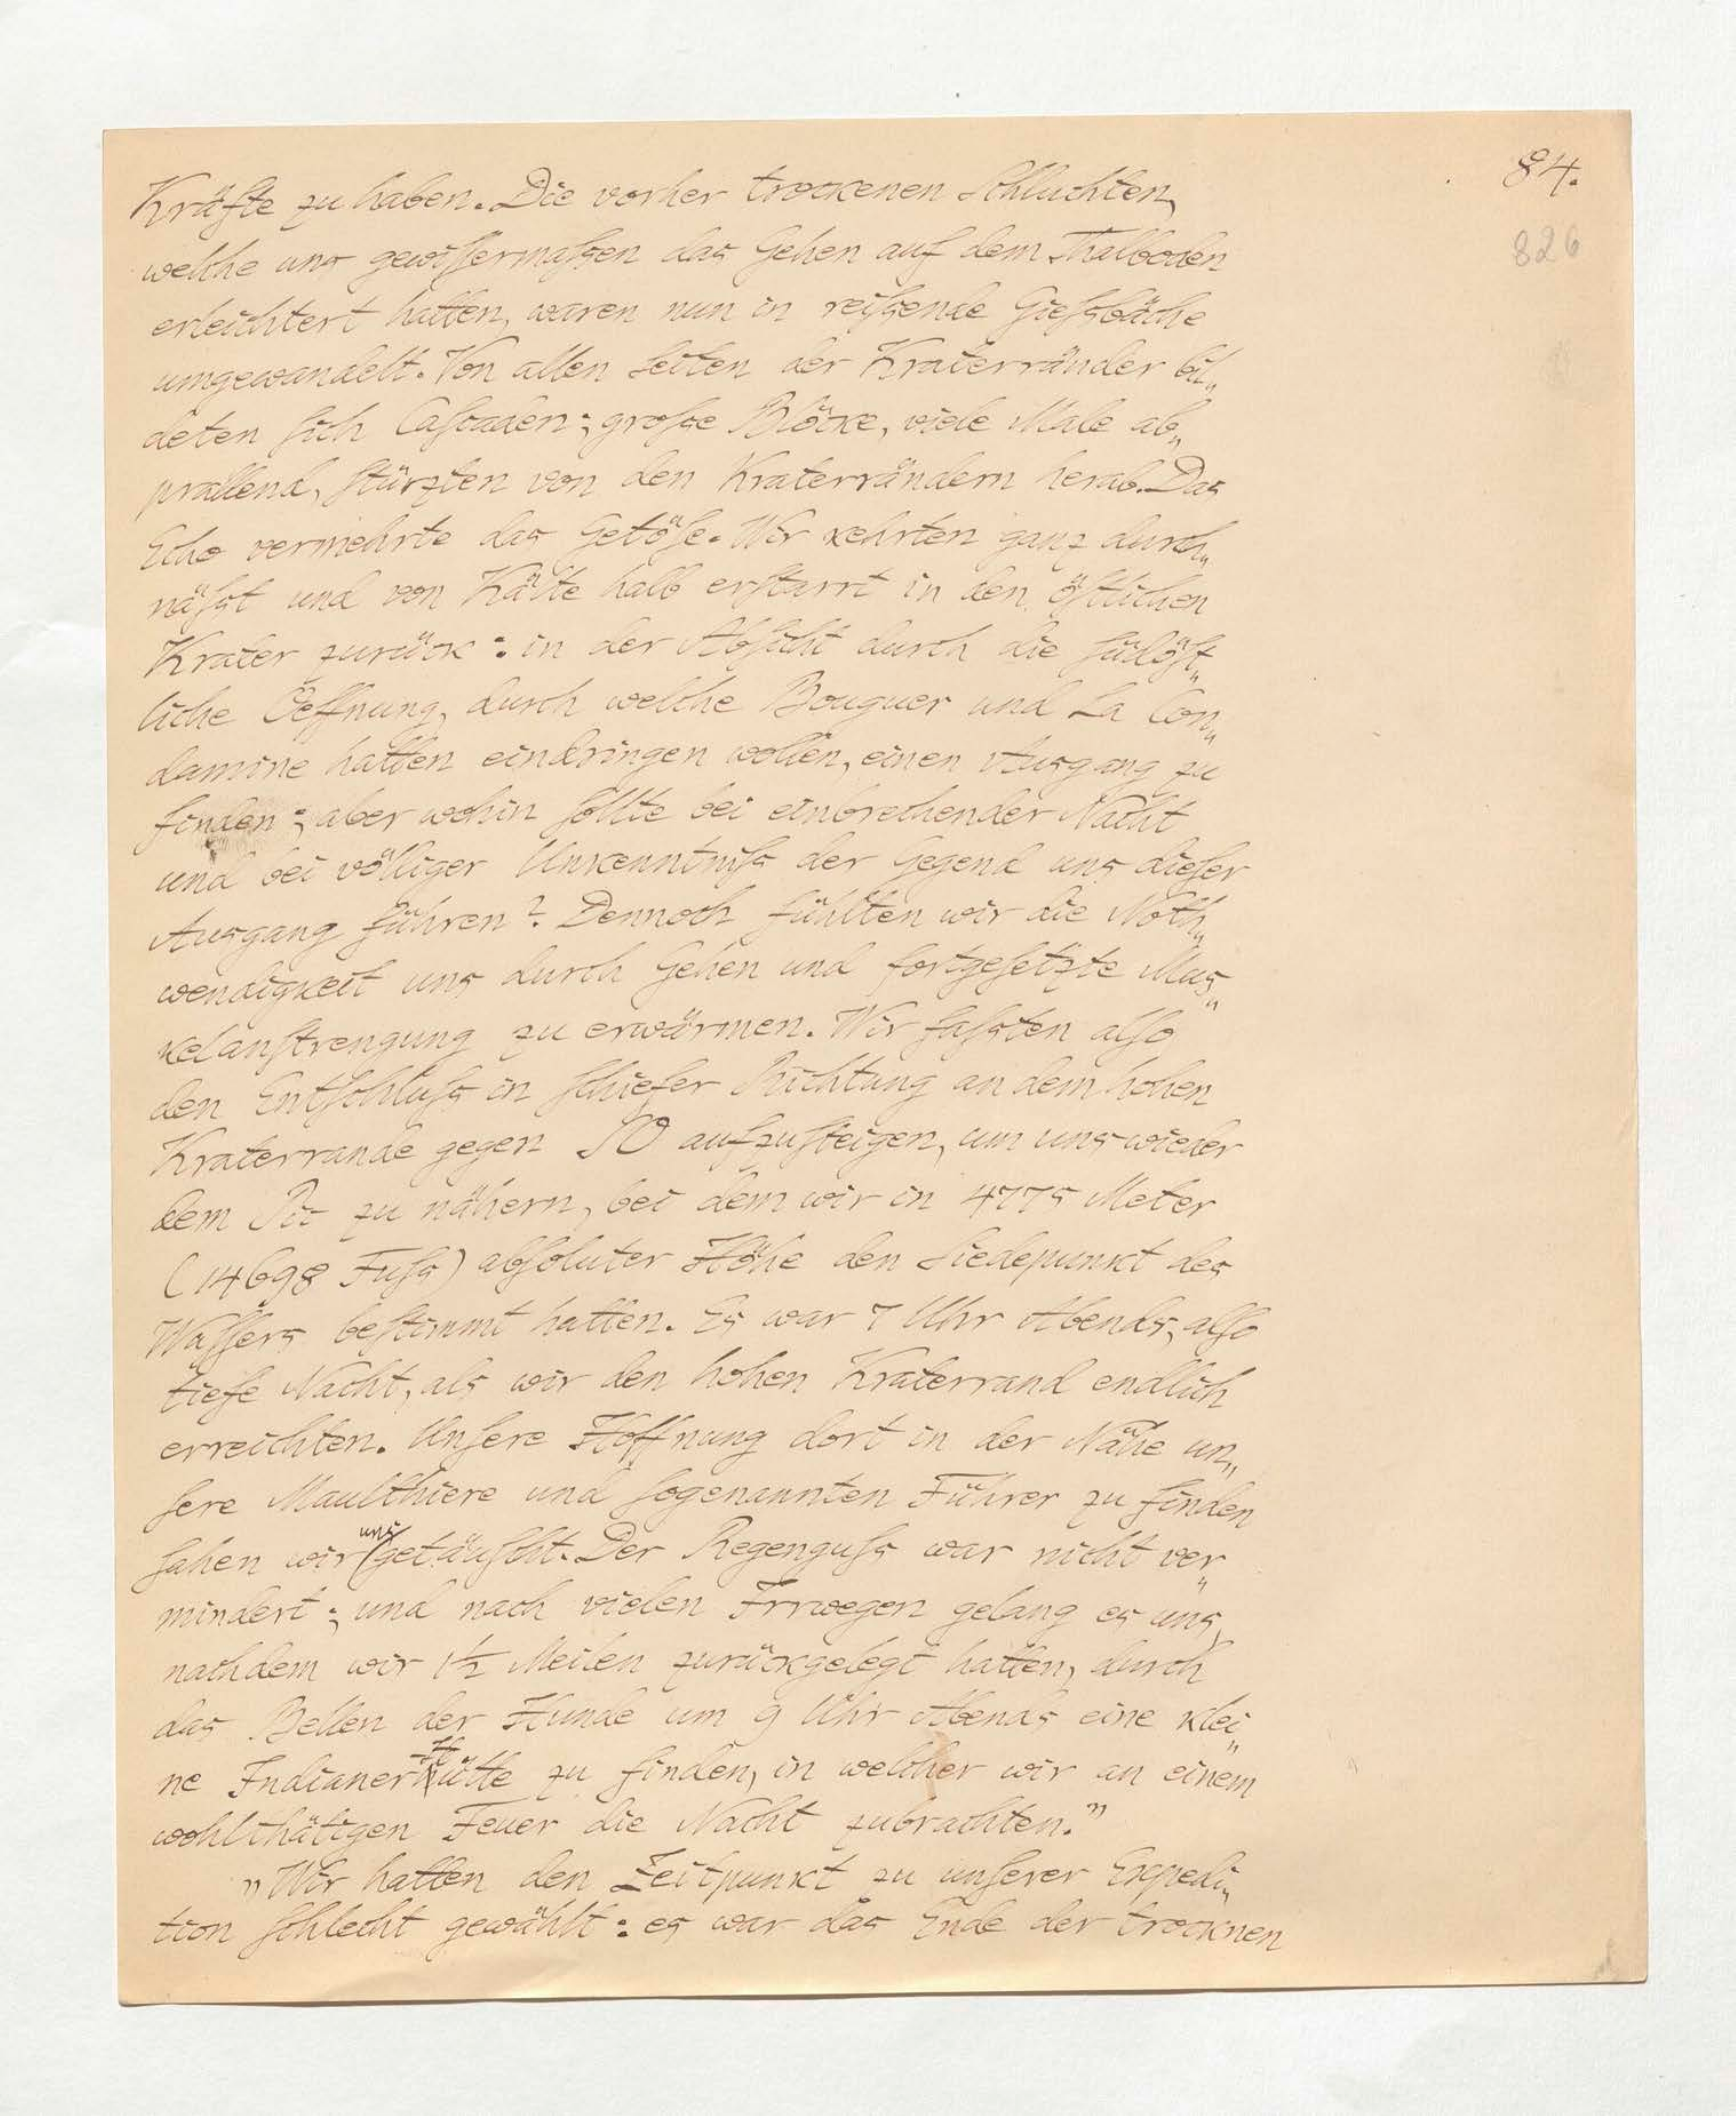 84.
826
Kräfte zu haben. Die vorher trockenen Schluchten,
welche uns gewiſſermaſsen das Gehen auf dem Thalboden
erleichtert hatten, waren nun in reiſsende Gieſsbäche
umgewandelt. Von allen Seiten der Kraterränder bil„
deten ſich Caſcaden; groſse Blöcke, viele Male ab„
prallend, ſtürzten von den Kraterrändern herab. Das
Echo vermehrte das Getöſe. Wir kehrten ganz durch„
näſst und von Kälte halb erſtarrt in den öſtlichen
Krater zurück: in der Abſicht durch die ſüdöſt„
liche Oeffnung, durch welche Bouguer und La Con„
damine hatten eindringen wollen, einen Ausgang zu
finden; aber wohin ſollte bei einbrechender Nacht
und bei völliger Unkenntniſs der Gegend uns dieſer
Ausgang führen? Dennoch fühlten wir die Noth„
wendigkeit uns durch Gehen und fortgeſetzte Mus„
kelanſtrengung zu erwärmen. Wir faſsten alſo
den Entſchluſs in ſchiefer Richtung an dem hohen
Kraterrande gegen SO aufzuſteigen, um uns wieder
dem Pic zu nähern, bei dem wir in 4775 Meter
(14698 Fuſs) abſoluter Höhe den Siedepunkt des
Waſſers beſtimmt hatten. Es war 7 Uhr Abends, alſo
tiefe Nacht, als wir den hohen Kraterrand endlich
erreichten. Unſere Hoffnung dort in der Nähe un„
ſere Maulthiere und ſogenannten Führer zu finden
ſahen wir uns getäuſcht. Der Regenguſs war nicht ver„
mindert; und nach vielen Irrwegen gelang es uns,
nachdem wir 1½ Meilen zurückgelegt hatten, durch
das Bellen der Hunde um 9 Uhr Abends eine klei„
ne Indianer Hütte zu finden, in welcher wir an einem
wohlthätigen Feuer die Nacht zubrachten."
"Wir hatten den Zeitpunkt zu unſerer Expedi„
tion ſchlecht gewählt: es war das Ende der trocknen